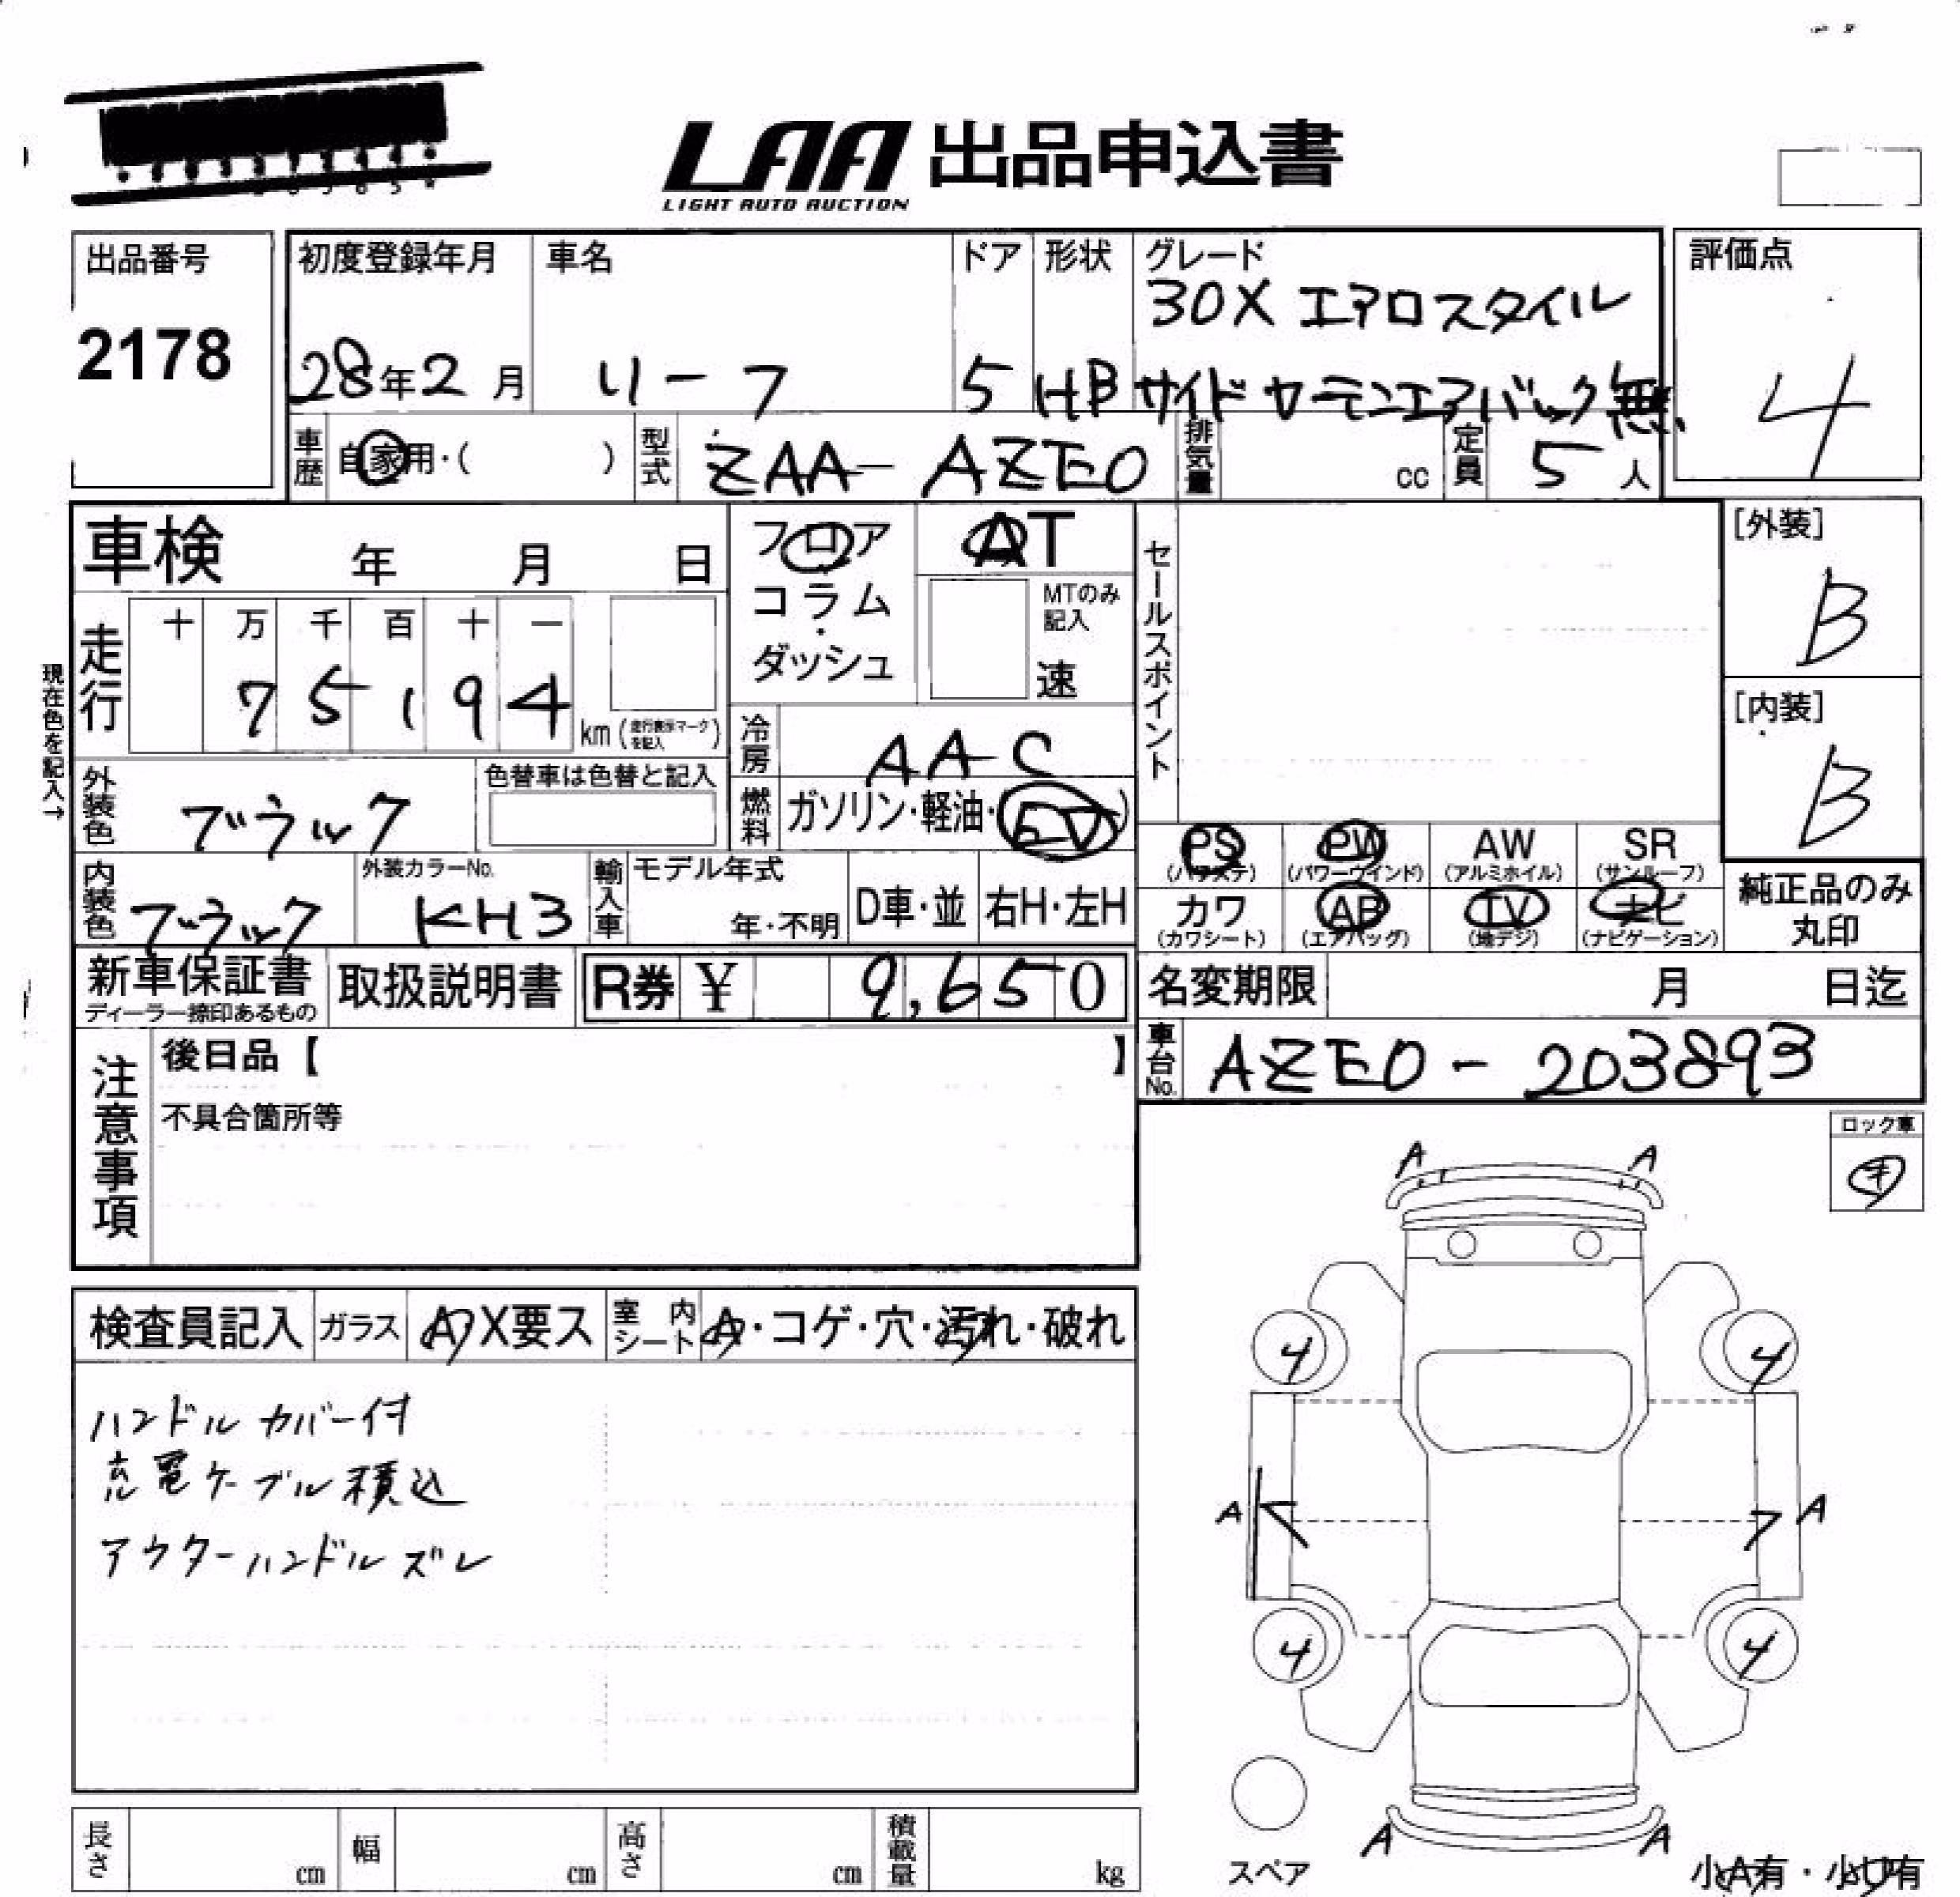 LAA 出品申込書
LIGHT AUTO AUCTION
出品番号
2178
初度登録年月
28年2月
車名
リーフ
ドア
5
形状
HB
グレード
30X エアロスタイル
サイドカーテンエアバック無
評価点
4
車歴
自家用・( )
型式
ZAA-AZE0
排気量
cc
定員
5人
車検 年 月 日
フロア
コラム
・
ダッシュ
AT
MTのみ
記入
速
セールスポイント
[外装]
B
[内装]
B
現在色を記入→
走行
十 万 千 百 十 一
7 5 1 9 4
km (走行表示マークを記入)
冷房
AAC
燃料
ガソリン・軽油・(EV)
外装色
ブラック
色替車は色替と記入
内装色
ブラック
外装カラーNo.
KH3
輸入車
モデル年式
年・不明
D車・並
右H・左H
PS
(パワステ)
PW
(パワーウインド)
AW
(アルミホイル)
SR
(サンルーフ)
カワ
(カワシート)
AB
(エアバッグ)
TV
(地デジ)
ナビ
(ナビゲーション)
純正品のみ
丸印
新車保証書
ディーラー捺印あるもの
取扱説明書
R券 ¥ 9,650
名変期限 月 日迄
車台No.
AZE0-203893
注意事項
後日品【 】
不具合箇所等
ロック車
キ
検査員記入
ガラス
A X要ス
室内シート
A・コゲ・穴・汚れ・破れ
ハンドルカバー付
充電ケーブル積込
アウターハンドルズレ
A A
4 4
A A
4 4
A A
スペア
小A有・小U有
長さ cm
幅 cm
高さ cm
積載量 kg